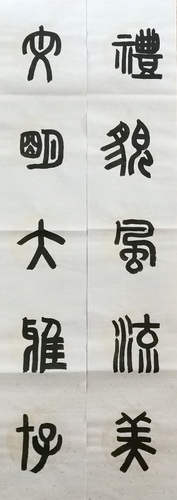 禮貌風流美
文明大雅存